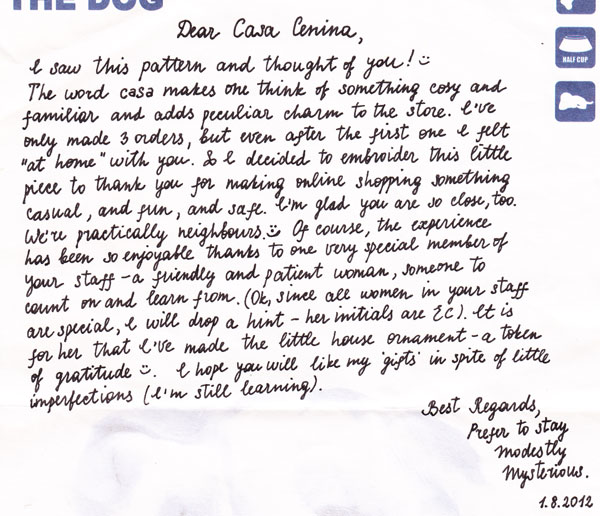 THE DOG
HALF CUP
Dear Casa Cenina,
I saw this pattern and thought of you! :)
The word casa makes one think of something cosy and
familiar and adds peculiar charm to the store. I've
only made 3 orders, but even after the first one I felt
"at home" with you. So I decided to embroider this little
piece to thank you for making online shopping something
casual, and fun, and safe. I'm glad you are so close, too.
We're practically neighbours. :) Of course, the experience
has been so enjoyable thanks to one very special member of
your staff - a friendly and patient woman, someone to
count on and learn from. (Ok, since all women in your staff
are special, I will drop a hint - her initials are EC). It is
for her that I've made the little house ornament - a token
of gratitude :). I hope you will like my 'gifts' in spite of little
imperfections (I'm still learning).
Best Regards,
Prefer to stay
Modestly
Mysterious.
1.8.2012